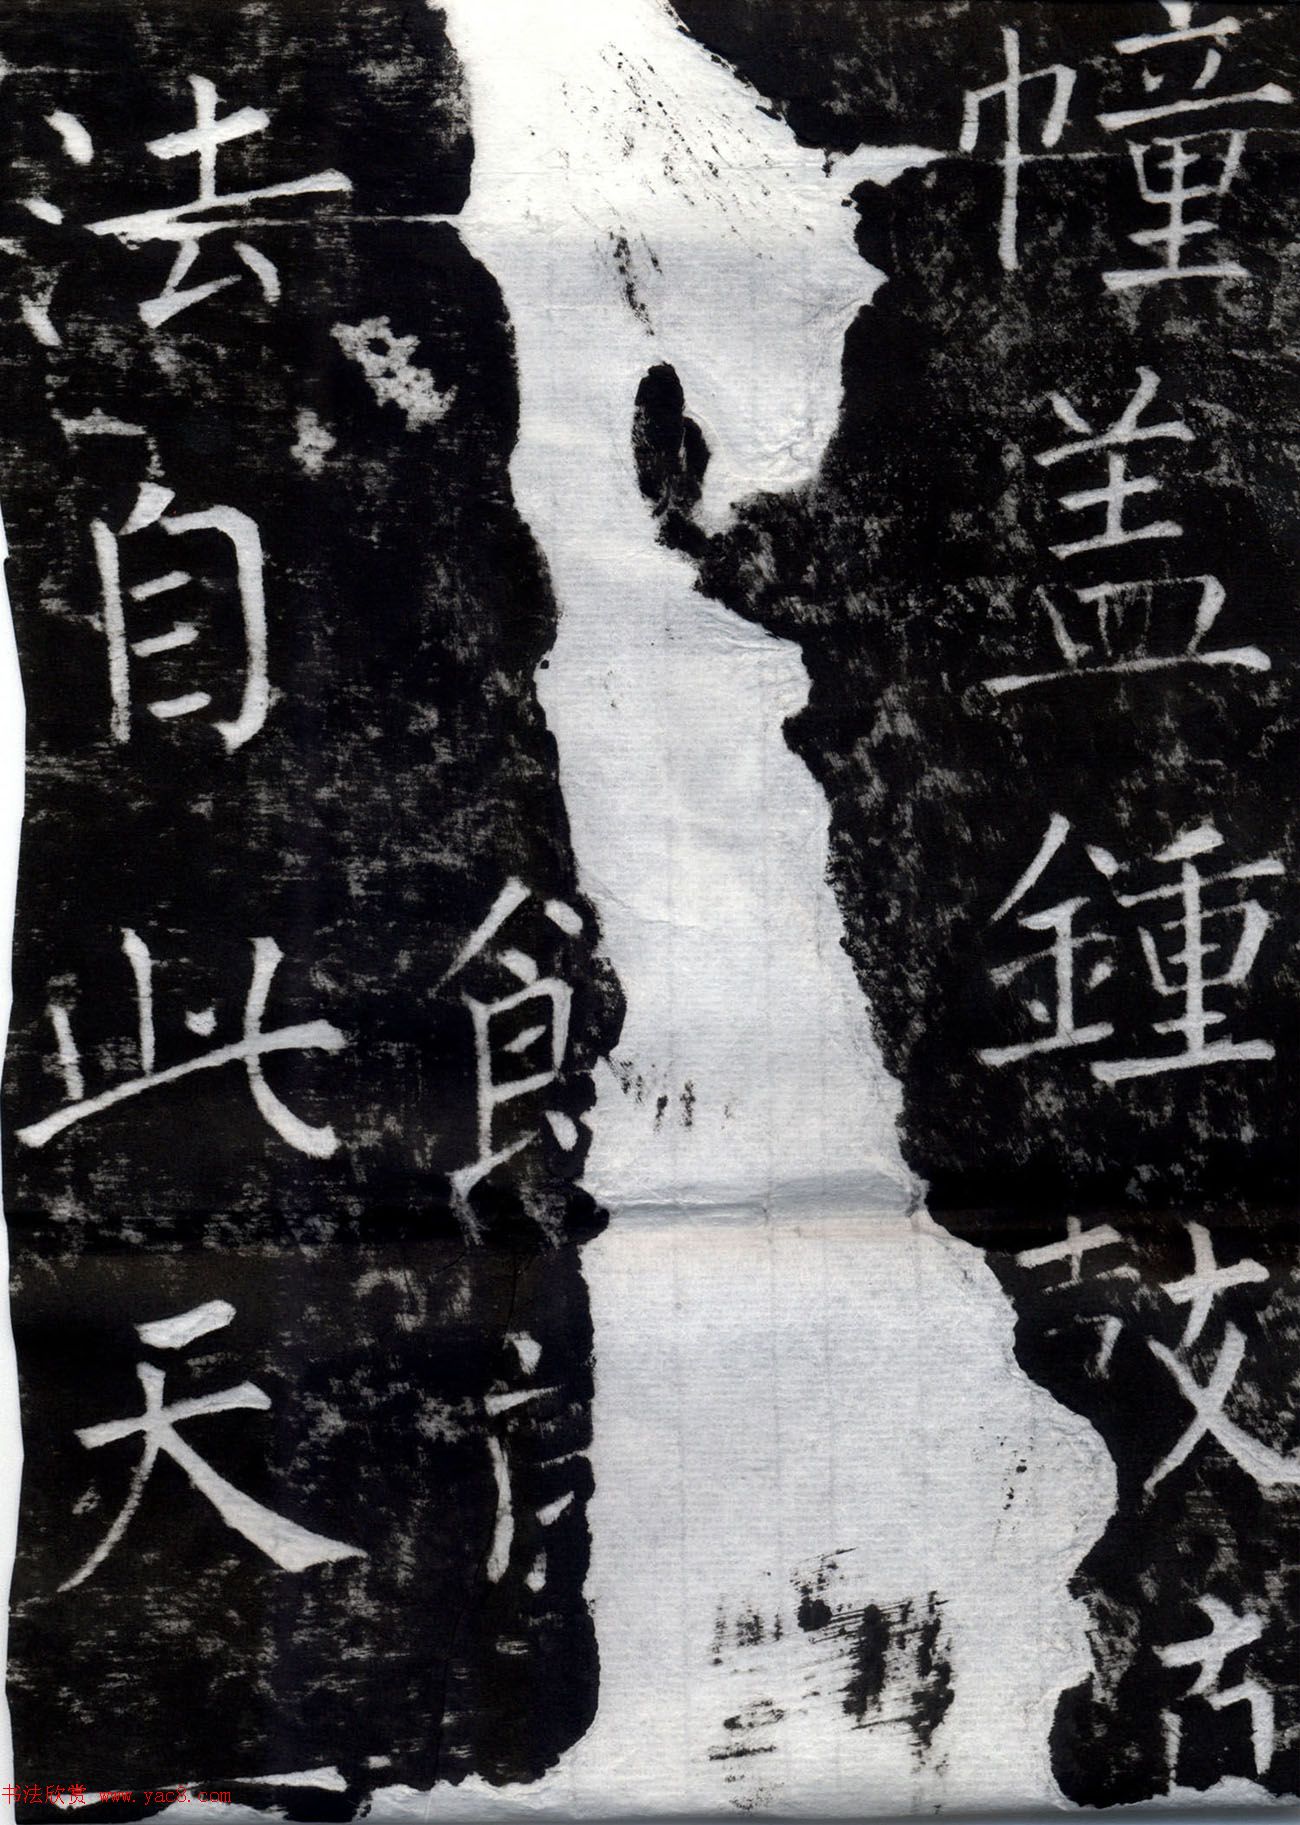 幢盖鍾鼓
食
法自此天
书法欣赏 www.yac8.com